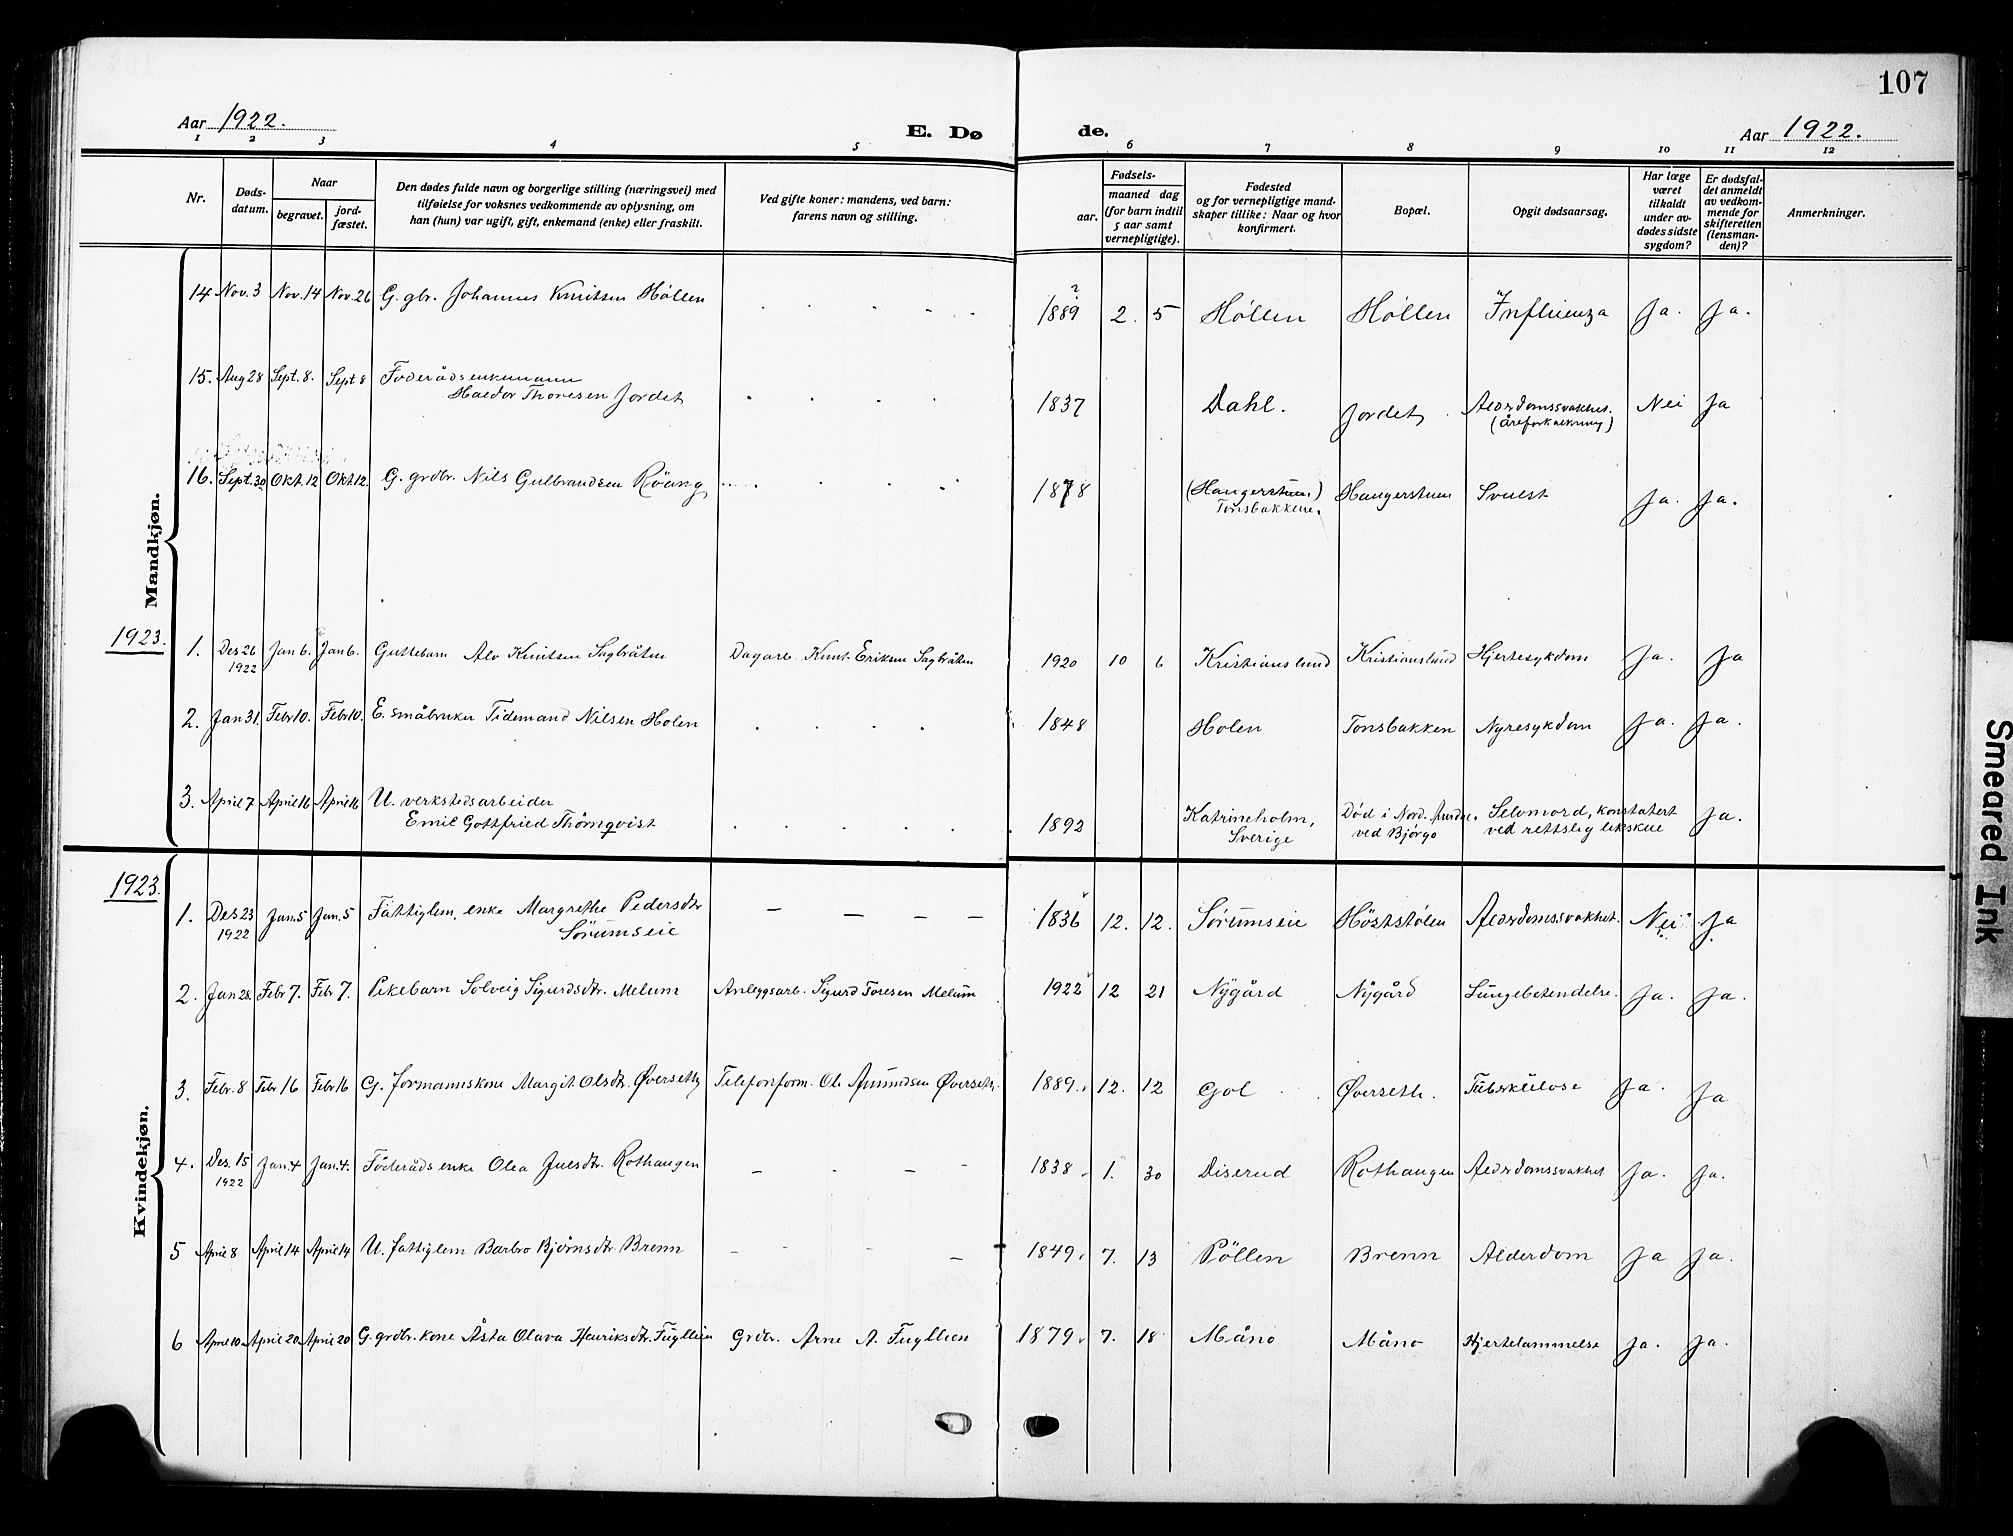 107
Aar 1922.
E. Dø de.
Aar 1922.
1 2 3 4 5 6 7 8 9 10 11 12
Nr.
Døds-datum.
Naar
begravet.
jord-fæstet.
Den dødes fulde navn og borgerlige stilling (næringsvei) med
tilføielse for voksnes vedkommende av oplysning, om
han (hun) var ugift, gift, enkemand (enke) eller fraskilt.
Ved gifte koner: mandens, ved barn:
farens navn og stilling.
Fødsels-
aar.
maaned dag
(for barn indtil
5 aar samt
vernepligtige).
Fødested
og for vernepligtige mand-
skaper tillike: Naar og hvor
konfirmert.
Bopæl.
Opgit dødsaarsag.
Har læge
været
tilkaldt
under av-
dødes sidste
sygdom?
Er dødsfal-
det anmeldt
av vedkom-
mende for
skifteretten
(lensman-
den)?
Anmerkninger.
Mandkjøn.
14 Nov. 3 Nov. 14 Nov. 26 G. gbr. Johannes Knutsen Høllen 1889 ? 2. 5 Høllen Høllen Influenza Ja. Ja.
15. Aug 28 Sept. 8. Sept 8 Föderådsenkemann
Haldor Thoresen Jordet 1837 Dahl. Jordet Alderdomssvakhet. Nei Ja
(åreforkalkning)
16. Sept. 30 Okt. 12 Okt. 12 G. grdbr. Nils Gulbrandsen Röang 1878 (Haugerstuen.) Haugerstuen Svulst Ja. Ja.
Tonsbakkene.
1923.
1. Des 26 Jan 6. Jan 6. Guttebarn Alv Knutsen Sagbråten Dagarb. Knut Eriksen Sagbråten 1920 10 6 Kristianslund Kristianslund Hjertesykdom Ja. Ja
1922
2. Jan 31. Febr 10. Febr 10. E. småbruker Tidemand Nilsen Holen 1848 Holen Tonsbakken Nyresykdom Ja. Ja.
3. April 7 April 16 April 16 U. verkstedsarbeider
Emil Gottfried Thörnqvist 1892 Katrineholm, Sverige Död i Nord. ved Bjørgo Selvmord, konstatert ved rettslig likskue Ja.
Kvindekjøn.
1923.
1. Des 23 Jan. 5 Jan. 5 Fattiglem, enke Margrethe Pedersdtr — — — — 1836 12. 12. Sörumseie Höststölen Alderdomssvakhet. Nei Ja
1922 Sörumseie
2. Jan 28. Febr 7. Febr 7. Pikebarn Solveig Sigurdsdtr. Melum Anleggsarb. Sigurd Toresen Melum 1922 12 21 Nygård Nygård Lungebetendelse. Ja. Ja.
3. Febr. 8 Febr 16 Febr 16 G. formannskone Margit Olsdtr. Øverseth Telefonform. Ole Amundsen Øverseth 1889. 12. 12 Gol Øverseth. Tuberkulose Ja. Ja
4. Des. 15 Jan. 4 Jan. 4. Föderåds enke Olea Juelsdtr. Rothaugen — — — 1838 1. 30 Diserud Rothaugen Alderdomssvakhet Ja. Ja.
1922
5 April 8 April 14 April 14 U. fattiglem Barbro Bjørnsdtr. Brenn — — — — 1849. 7. 13 Pöllen Brenn Alderdom Ja Ja.
6 April 10 April 20 April 20 G. grdbr. kone Åsta Olava Henriksdtr. Fuglien Grdbr. Arne A. Fuglien 1879. 7. 18 Måno Måno Hjertelammelse Ja. Ja.
Smeared Ink